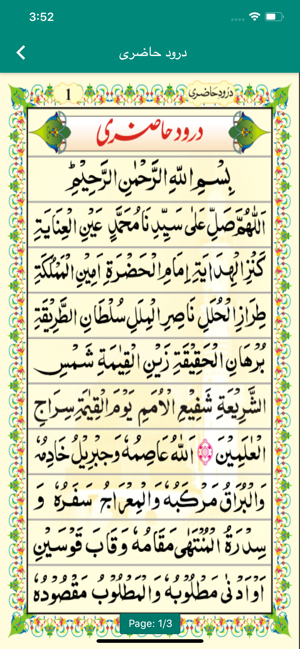 3:52
درود حاضری
1
درود حاضری
درود حاضری
بِسْمِ اللّٰهِ الرَّحْمٰنِ الرَّحِيْمِ
اَللّٰهُمَّ صَلِّ عَلٰى سَيِّدِنَا مُحَمَّدٍ عَيْنِ الْعِنَايَةِ
كَنْزِ الْهِدَايَةِ اِمَامِ الْحَضْرَةِ اَمِيْنِ الْمَمْلَكَةِ
طِرَازِ الْحُلَلِ نَاصِرِ الْمِلَلِ سُلْطَانِ الطَّرِيْقَةِ
بُرْهَانِ الْحَقِيْقَةِ زَيْنِ الْقِيٰمَةِ شَمْسِ
الشَّرِيْعَةِ شَفِيْعِ الْاُمَمِ يَوْمَ الْقِيٰمَةِ سِرَاجِ
الْعٰلَمِيْنَ اَللّٰهُ عَاصِمُهٗ وَجِبْرِيْلُ خَادِمُهٗ
وَالْبُرَاقُ مَرْكَبُهٗ وَالْمِعْرَاجُ سَفَرُهٗ وَ
سِدْرَةُ الْمُنْتَهٰى مَقَامُهٗ وَقَابَ قَوْسَيْنِ
اَوْاَدْنٰى مَطْلُوْبُهٗ وَالْمَطْلُوْبُ مَقْصُوْدُهٗ
Page: 1/3